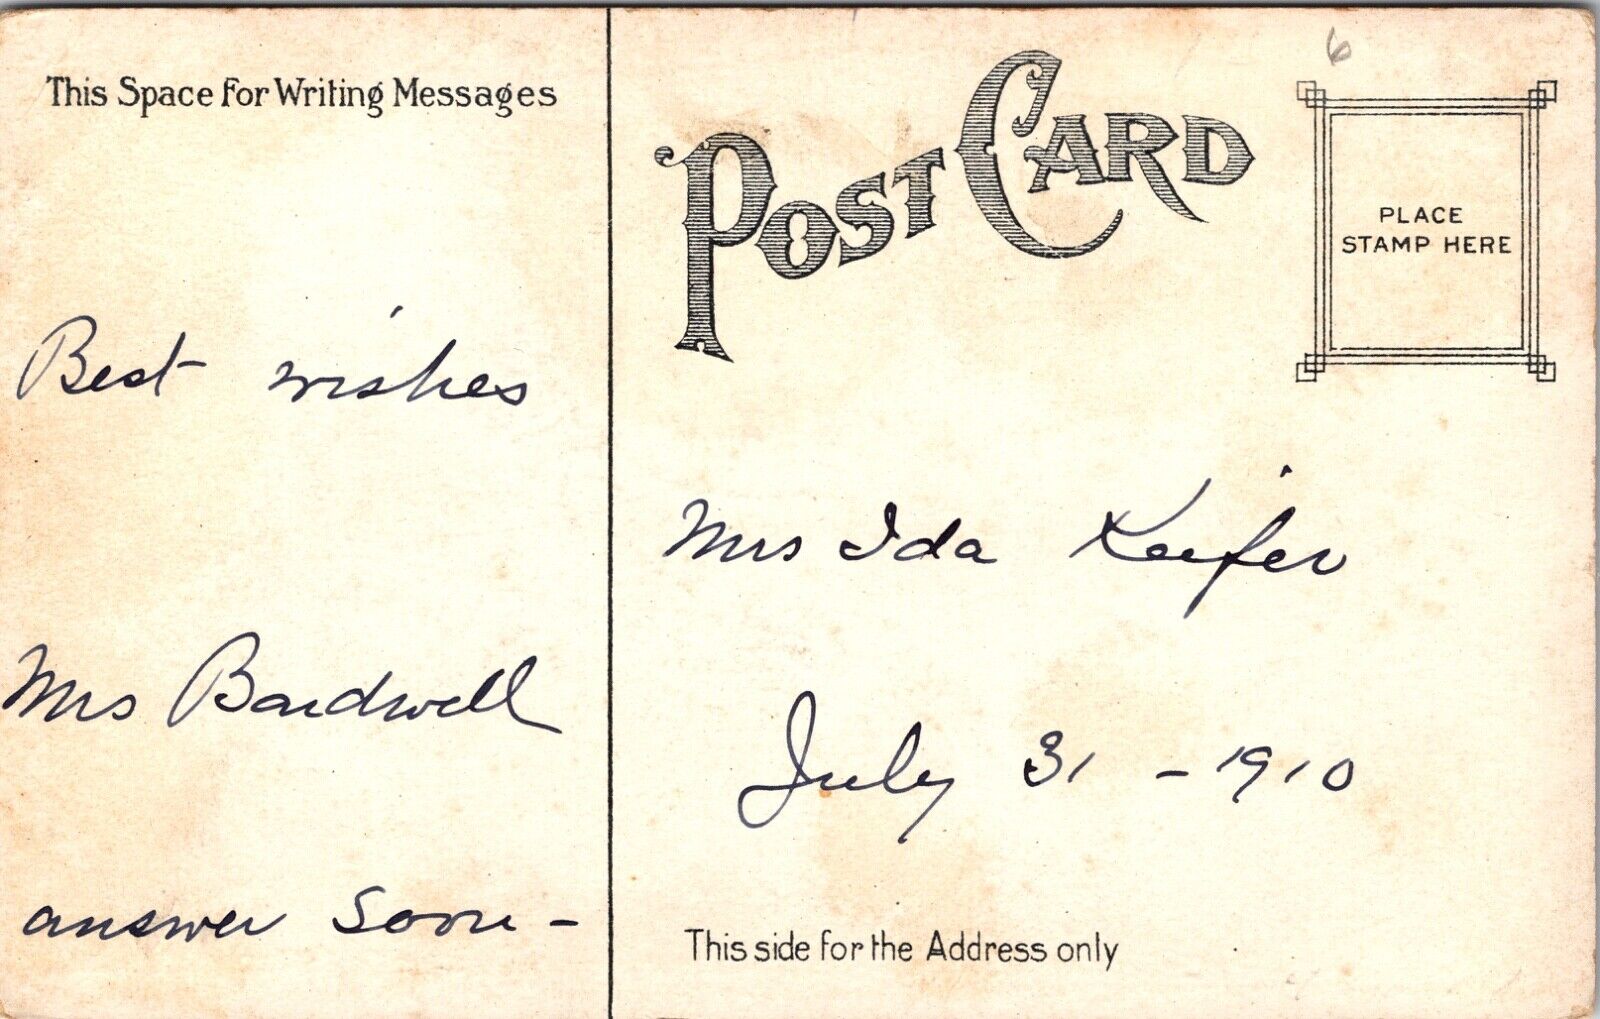 This Space For Writing Messages
Best wishes
Mrs Bardwell
answer soon -
6
POST CARD
PLACE
STAMP HERE
Mrs Ida Keifer
July 31 - 1910
This side for the Address only